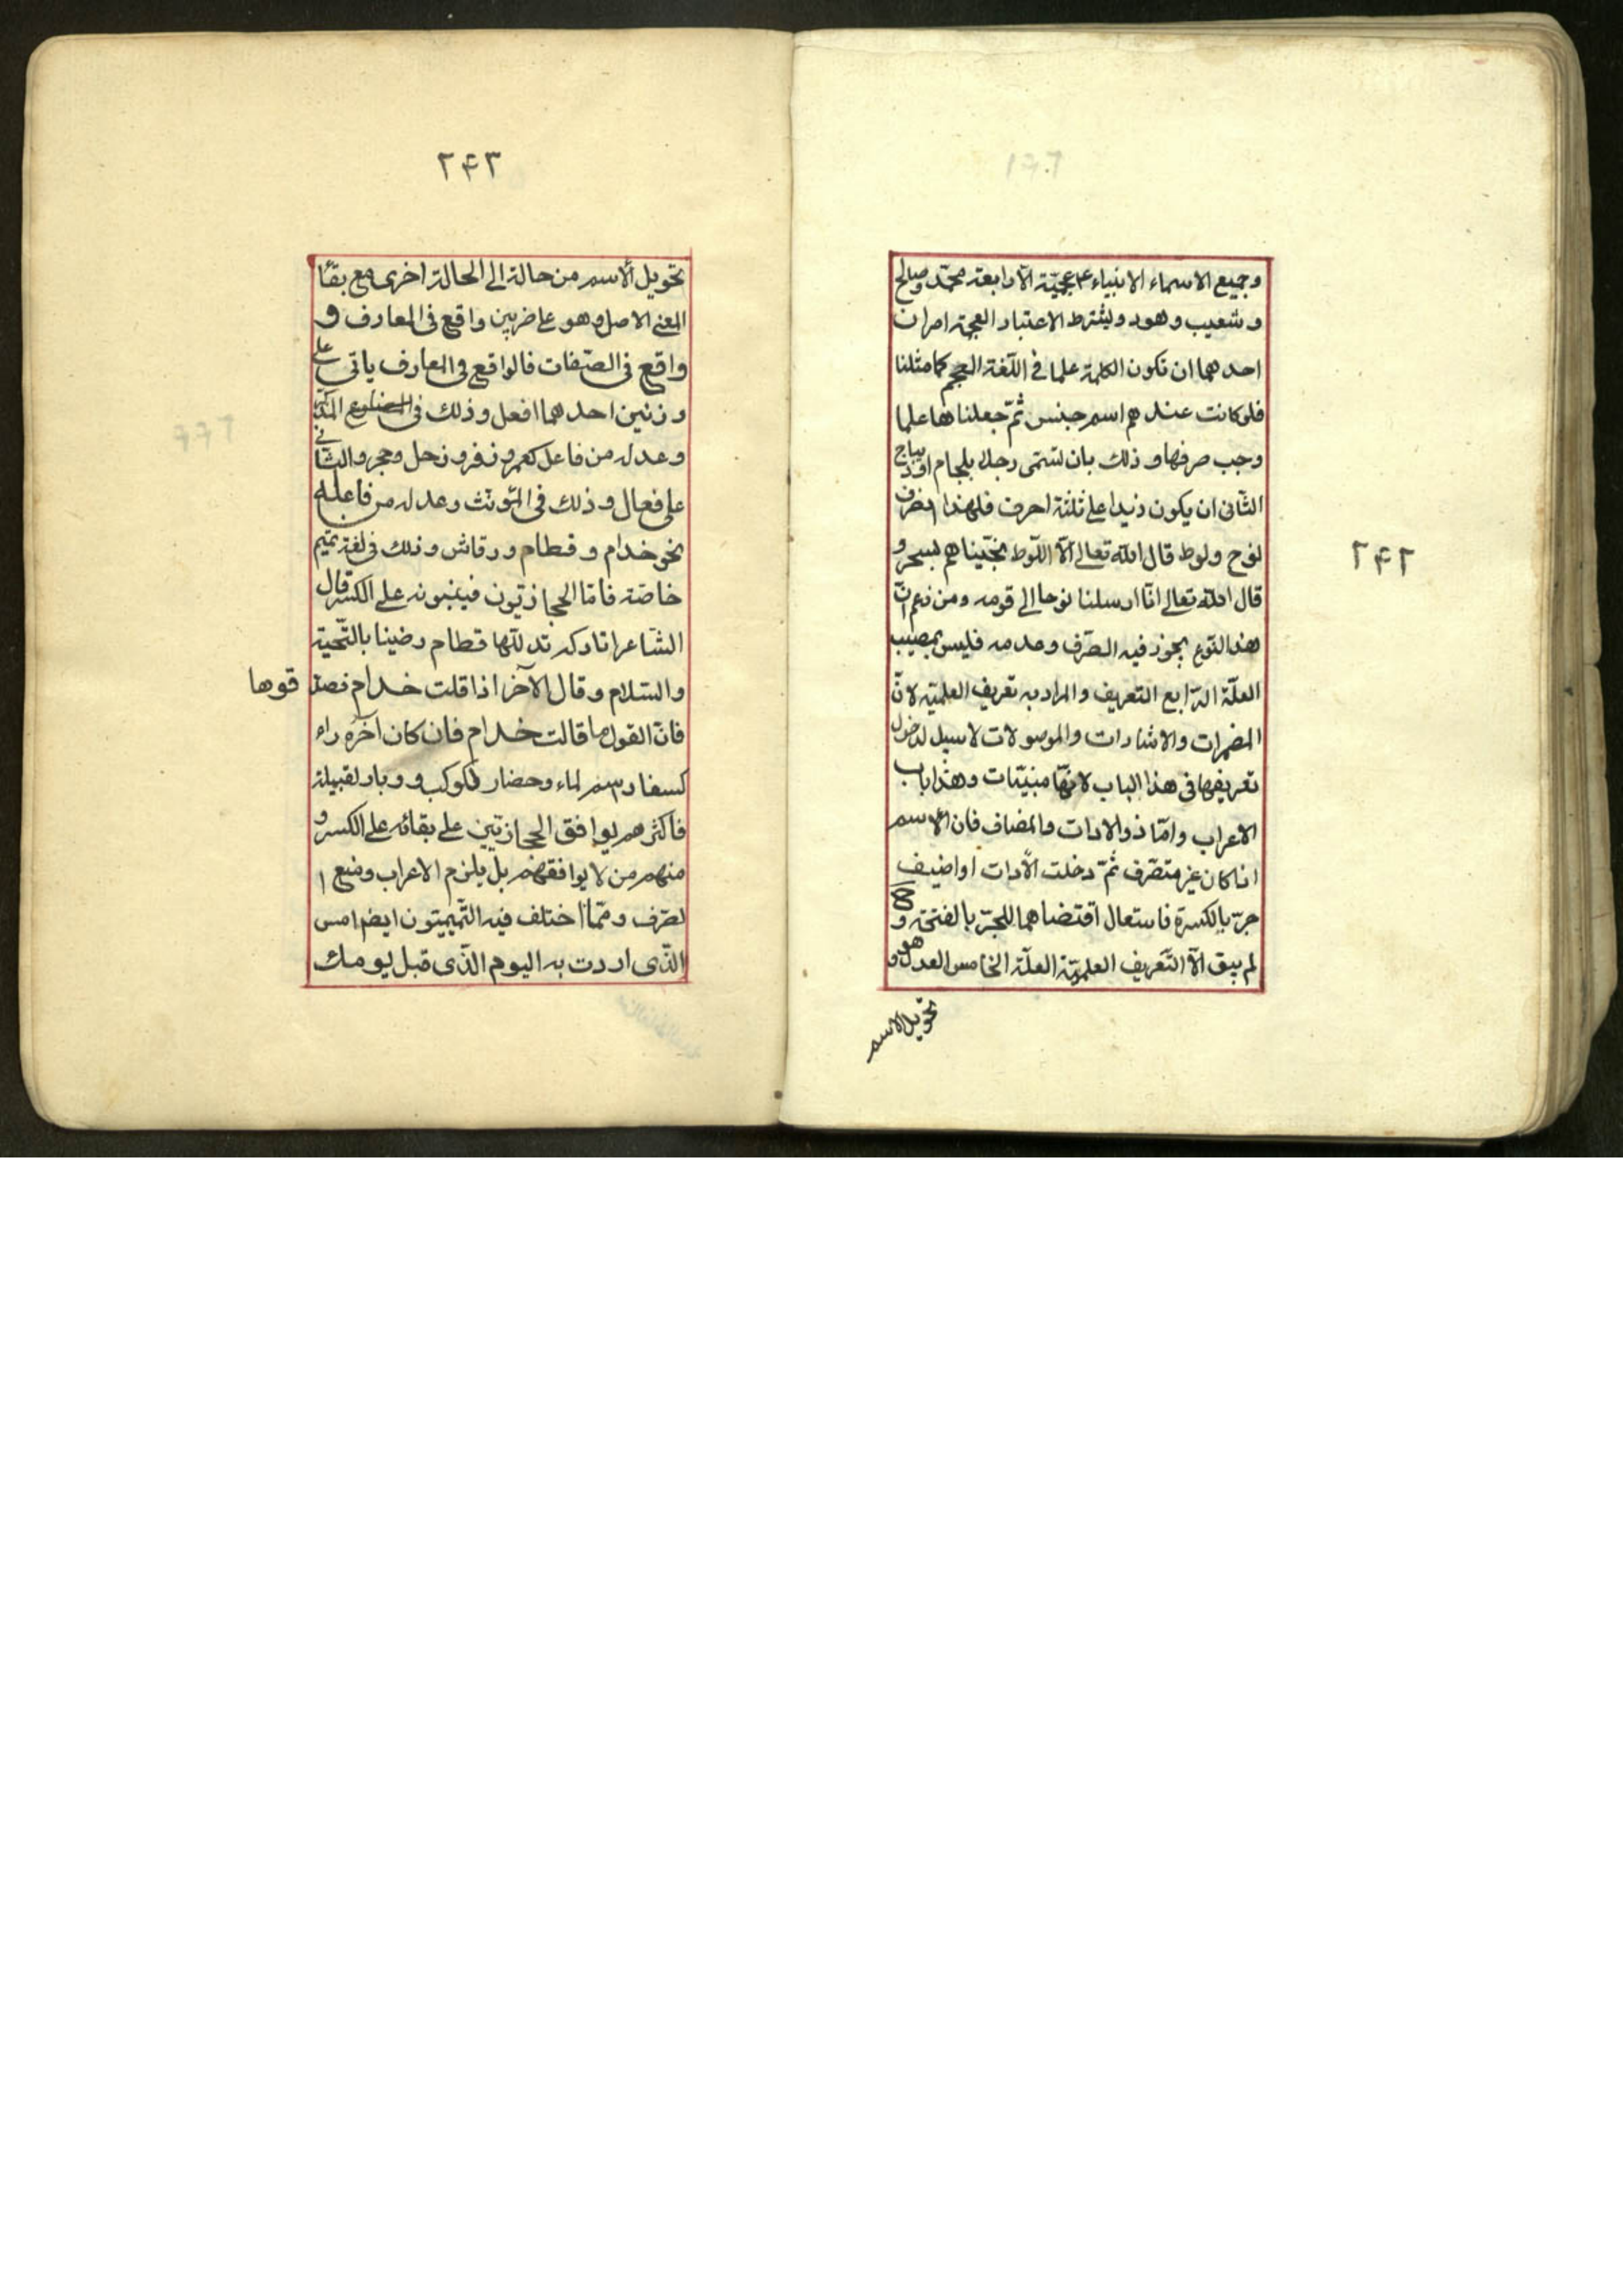 ۲۴۲
وجميع الاسماء الانبياء ع عجميّة الّا اربعة محمّد وصالح
وشعيب وهود ويشترط الاعتبار العجمة امران
احدهما ان تكون الكلمة علما فى اللّغة العجم كما مثلنا
فلو كانت عندهم اسم جنس ثمّ جعلناها علما
وجب صرفها وذلك بان تسمّى رجلا بلجام او ديباج
الثّانى ان يكون زيدا على ثلثة احرف فلهذا انصرف
نوح ولوط قال الله تعالى الّا اللّوط نجّيناهم بسحر و
قال الله تعالى انّا ارسلنا نوحا الى قومه ومن زعم انّ
هذا النّوع يجوز فيه الصّرف وعدمه فليس بمصيب
العلّة الرّابع التعريف والمراد به تعريف العلميّة لانّ
المضمرات والاشارات والموصولات لا سبيل لدخول
تعريفها فى هذا الباب لانّها مبنيّات وهذا باب
الاعراب وامّا ذو الادات والمضاف فان الاسم
اذا كان غير متصّرف ثمّ دخلت الأدات او اضيف
جرّ بالكسرة فاستعال اقتضاهما للجرّ بالفتحة و
لم يبق الّا التّعريف العلميّة العلّة الخامس العدل وهو
تحويل الاسم
۲۴۳
تحويل الأسم من حالة الى الحالة اخرى مع بقاء
المعنى الاصل وهو على ضربين واقع فى المعارف و
واقع فى الصّفات فالواقع فى المعارف ياتى على
وزنين احدهما افعل وذلك فى المذكّر
وعدله من فاعل كعمر وزفر وزحل وحجر والثّانى
على فعال وذلك فى المؤنّث وعدله من فاعلة
نحو خدام وقطام ورقاش وذلك فى لغة تميم
خاصّة فامّا الحجازيّون فيبنونه على الكسر قال
الشّاعر اتاركة تدلّلها قطام رضينا بالتّحيّة
والسّلام وقال الآخر اذا قلت خدام فصد قوها
فانّ القول ما قالت خدام فان كان آخره راء
كسفار اسم لماء وحضار لكوكب ووبار لقبيلة
فاكثرهم يوافق الحجازيّين على بقائه على الكسر و
منهم من لا يوافقهم بل يلزم الاعراب ومنع ا
لصّرف وممّا اختلف فيه التّميميّون ايضا امس
الّذى اردت به اليوم الّذى قبل يومك